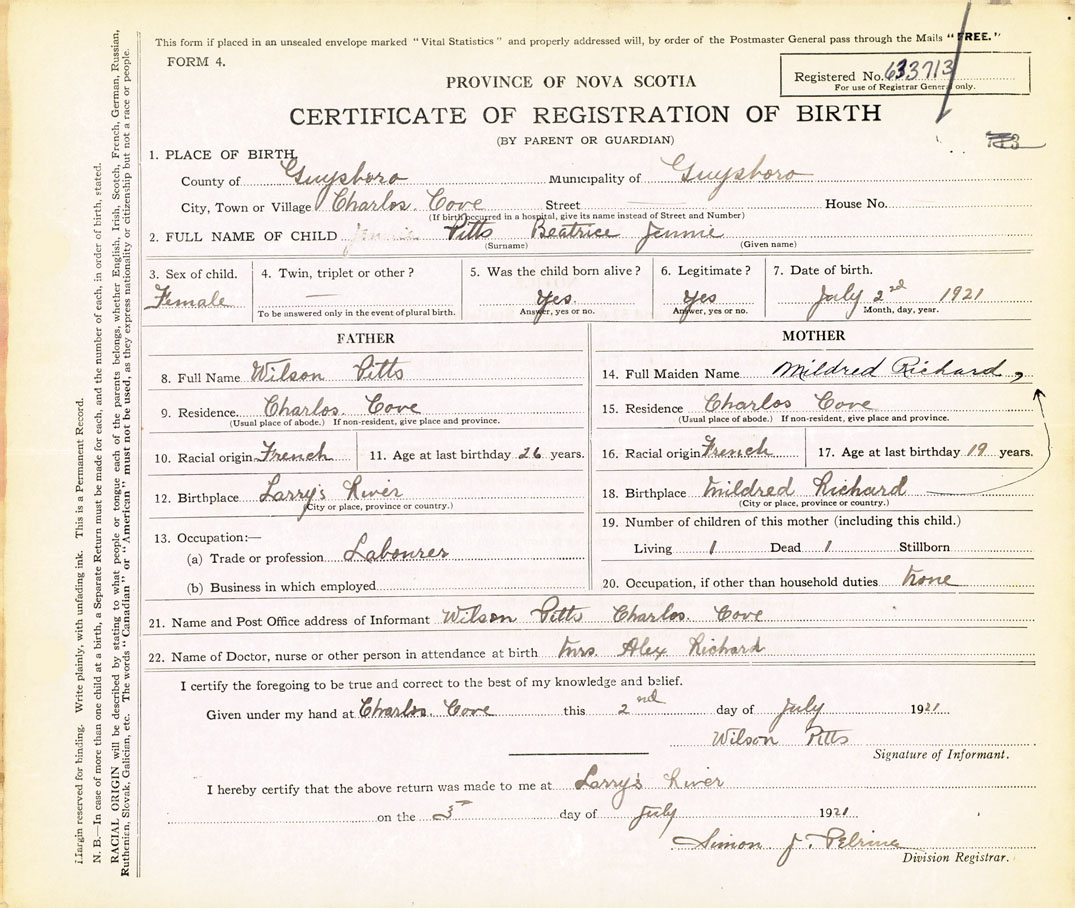 This form if placed in an unsealed envelope marked "Vital Statistics" and properly addressed will, by order of the Postmaster General pass through the Mails "FREE."
FORM 4.
Registered No. 633713
For use of Registrar General only.
PROVINCE OF NOVA SCOTIA
CERTIFICATE OF REGISTRATION OF BIRTH
(BY PARENT OR GUARDIAN)
1. PLACE OF BIRTH
County of Guysboro Municipality of Guysboro
City, Town or Village Charlos Cove Street House No.
(If birth occurred in a hospital, give its name instead of Street and Number)
2. FULL NAME OF CHILD Jennie Pitts Beatrice Jennie
(Surname) (Given name)
3. Sex of child. 4. Twin, triplet or other? 5. Was the child born alive? 6. Legitimate? 7. Date of birth.
Female — Yes. Yes July 2nd 1921
To be answered only in the event of plural birth. Answer, yes or no. Answer, yes or no. Month, day, year.
FATHER
8. Full Name Wilson Pitts
9. Residence. Charlos. Cove
(Usual place of abode.) If non-resident, give place and province.
10. Racial origin French 11. Age at last birthday 26 years.
12. Birthplace Larry's River
(City or place, province or country.)
13. Occupation:—
(a) Trade or profession Labourer
(b) Business in which employed
MOTHER
14. Full Maiden Name Mildred Richard
15. Residence Charlos Cove
(Usual place of abode.) If non-resident, give place and province.
16. Racial origin French 17. Age at last birthday 19 years.
18. Birthplace Mildred Richard
(City or place, province or country.)
19. Number of children of this mother (including this child.)
Living 1 Dead 1 Stillborn
20. Occupation, if other than household duties none
21. Name and Post Office address of Informant Wilson Pitts Charlos. Cove
22. Name of Doctor, nurse or other person in attendance at birth Mrs. Alex Richard
I certify the foregoing to be true and correct to the best of my knowledge and belief.
Given under my hand at Charlos. Cove this 2nd day of July 1921
Wilson Pitts
Signature of Informant.
I hereby certify that the above return was made to me at Larry's River
on the day of July 1921
Simon J. Pelrine
Division Registrar.
Margin reserved for binding. Write plainly, with unfading ink. This is a Permanent Record.
N. B.—In case of more than one child at a birth, a Separate Return must be made for each, and the number of each, in order of birth, stated.
RACIAL ORIGIN will be described by stating to what people or tongue each of the parents belongs, whether English, Irish, Scotch, French, German, Russian,
Ruthenian, Slovak, Galician, etc. The words "Canadian" or "American" must not be used, as they express nationality or citizenship but not a race or people.